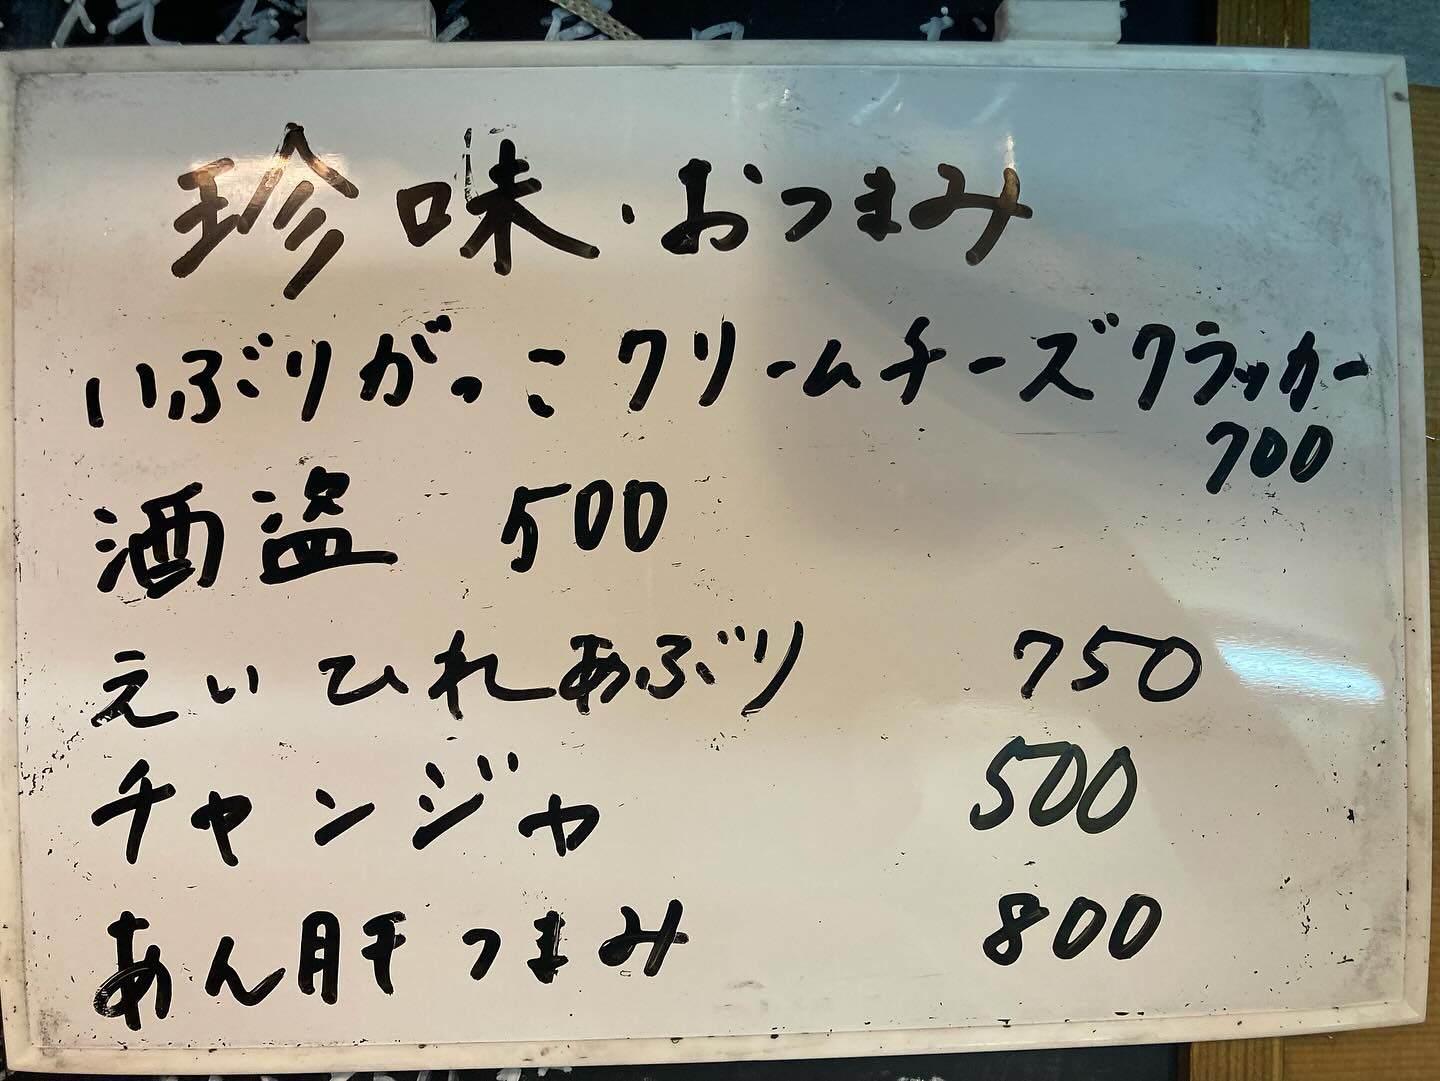 珍味・おつまみ
いぶりがっこクリームチーズクラッカー
700
酒盗 500
えいひれあぶり 750
チャンジャ 500
あん肝つまみ 800